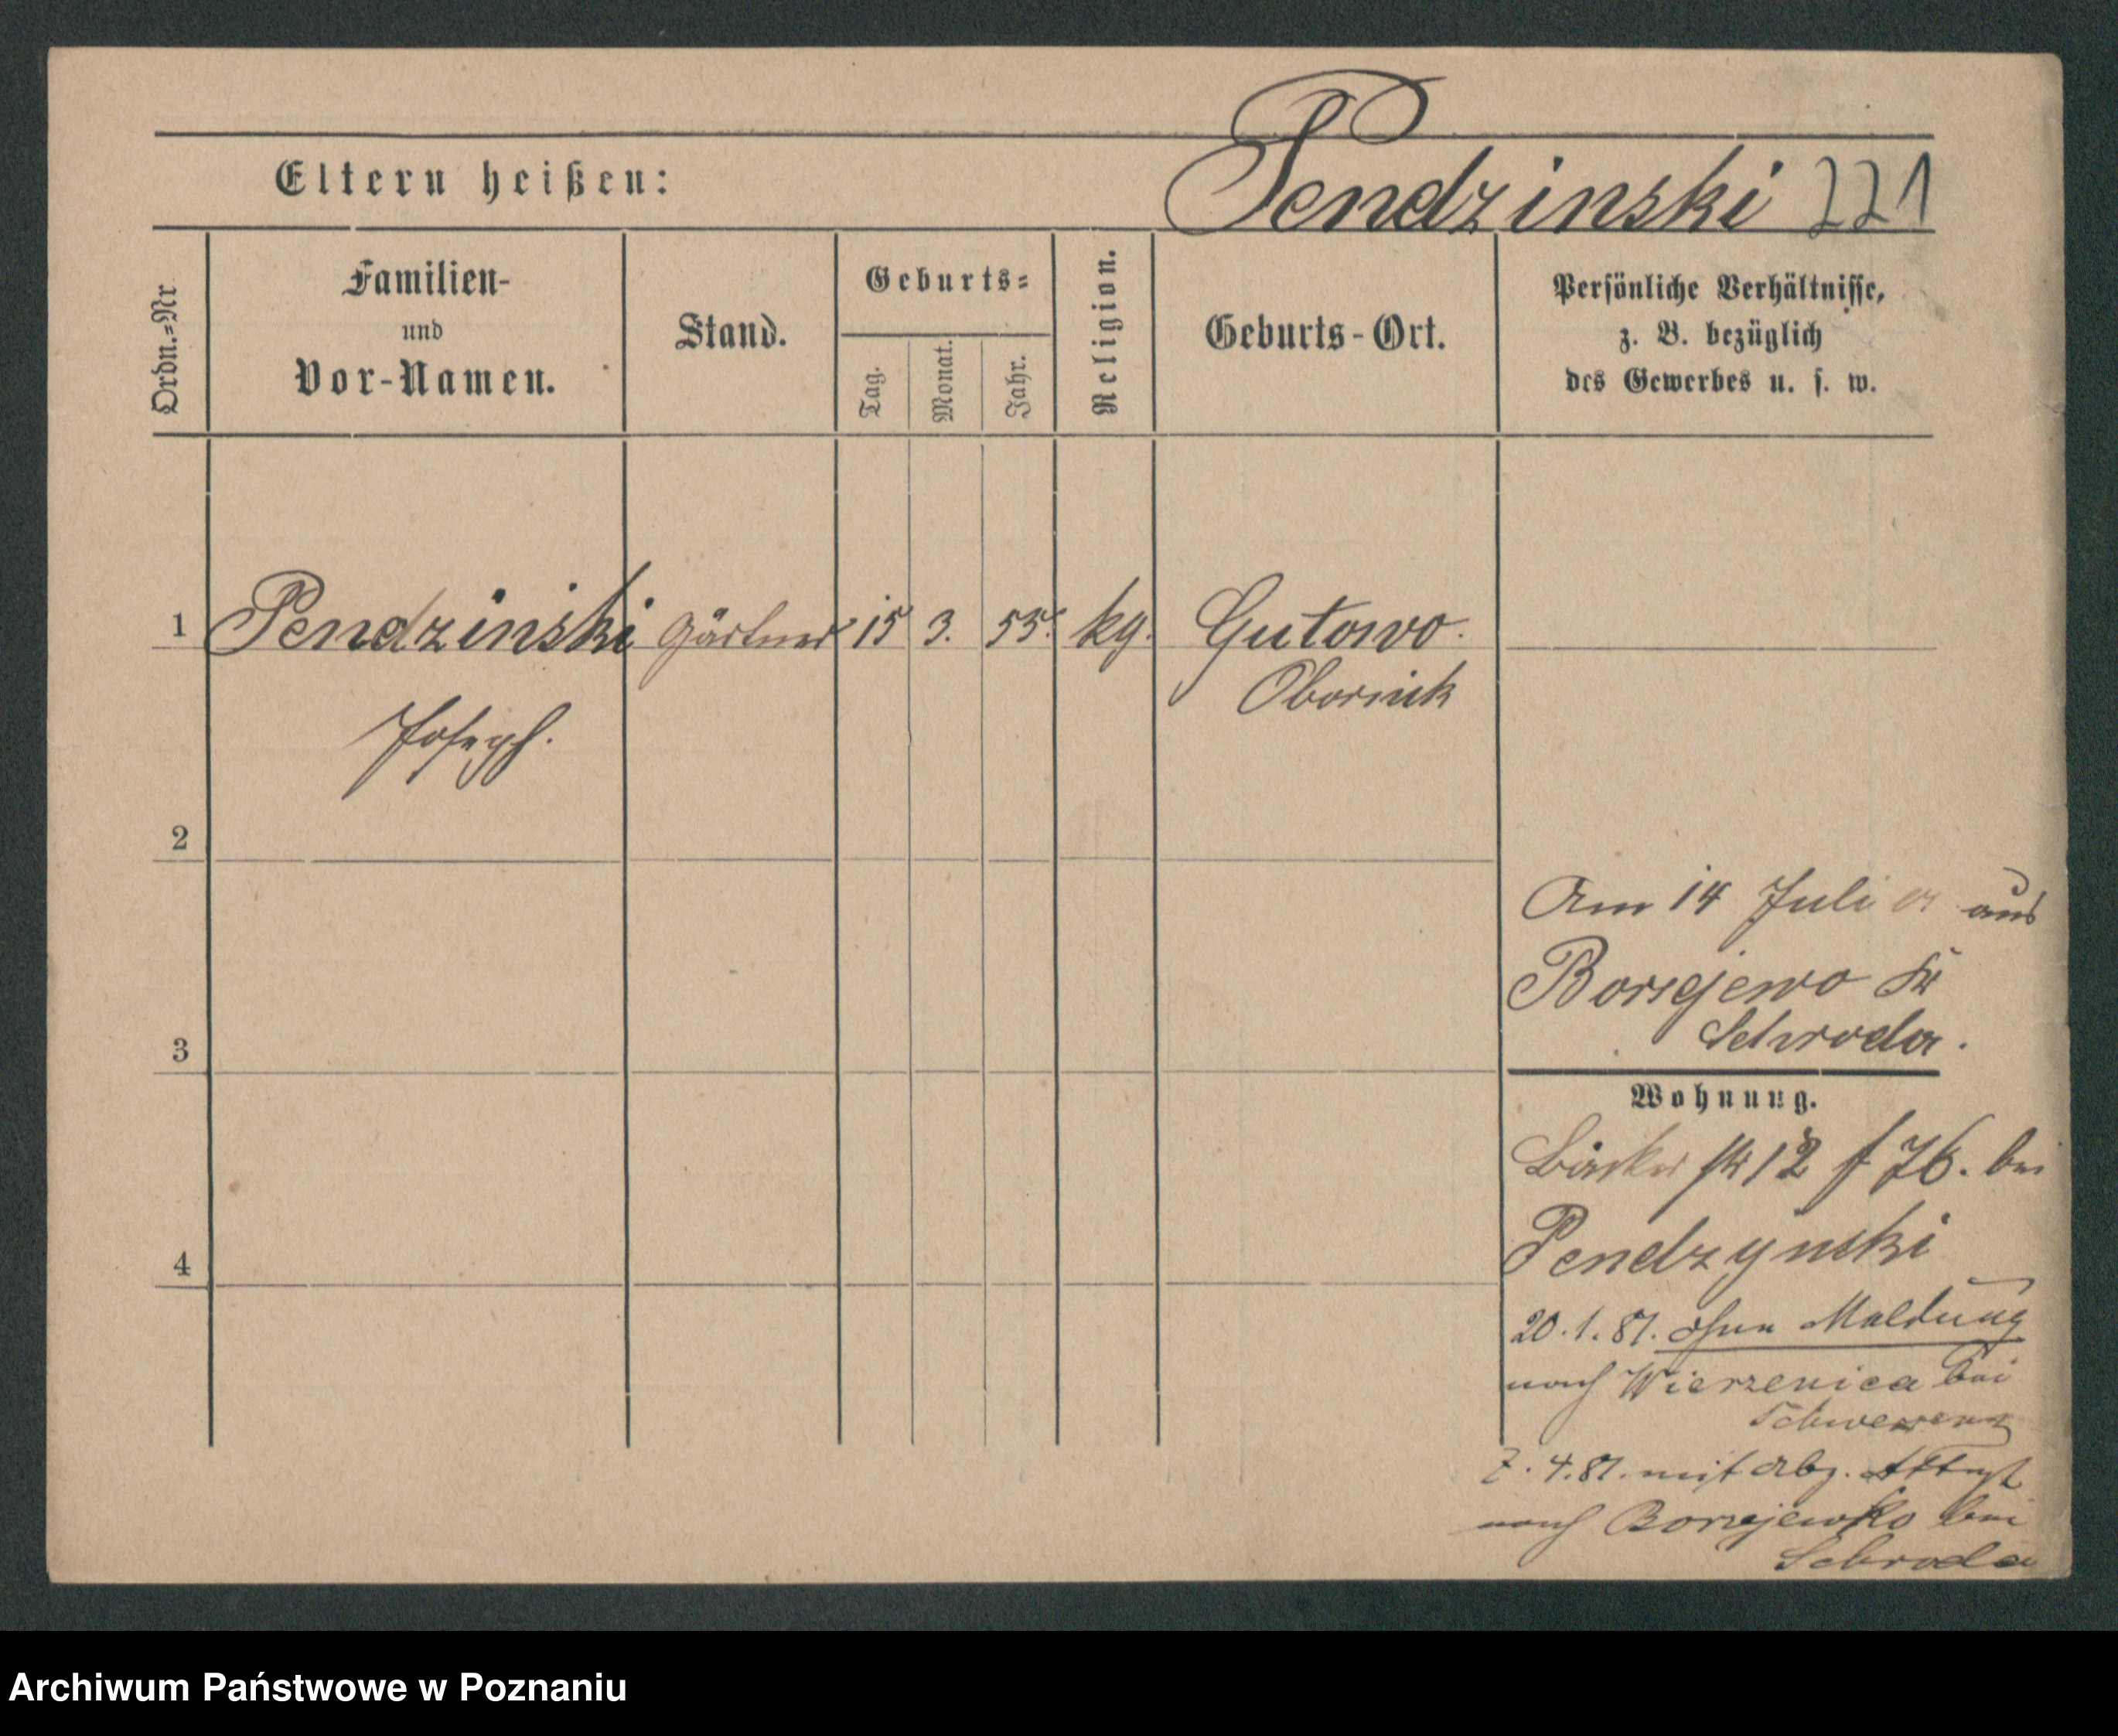 Eltern heißen:
Pendzinski 221
Ordn.=Nr
Familien-
und
Vor-Namen.
Stand.
Geburts=
Tag.
Monat.
Jahr.
Religion.
Geburts-Ort.
Persönliche Verhältnisse,
z. B. bezüglich
des Gewerbes u. s. w.
1 Pendzinski Gärtner 15 3. 55. kg. Gutowo.
Obornik
Joseph.
2
Am 14 Juli cr aus
Borzejewo Kr
Schroda.
3
Wohnung.
12 f 76. bei
Pendzynski
4
20. 1. 81. ohne Meldung
nach Wierzenica bei
Schwersenz
7. 4. 81. mit Abz. Attest
nach Borzejewko bei
Schroda
Archiwum Państwowe w Poznaniu